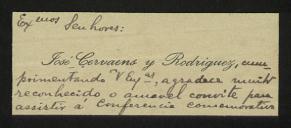 Ex.mos Senhores:
José Cervaens y Rodriguez, cum-
primentando V Ex.as, agradece muito
reconhecido o amavel convite para
assistir á Conferencia comemorativa